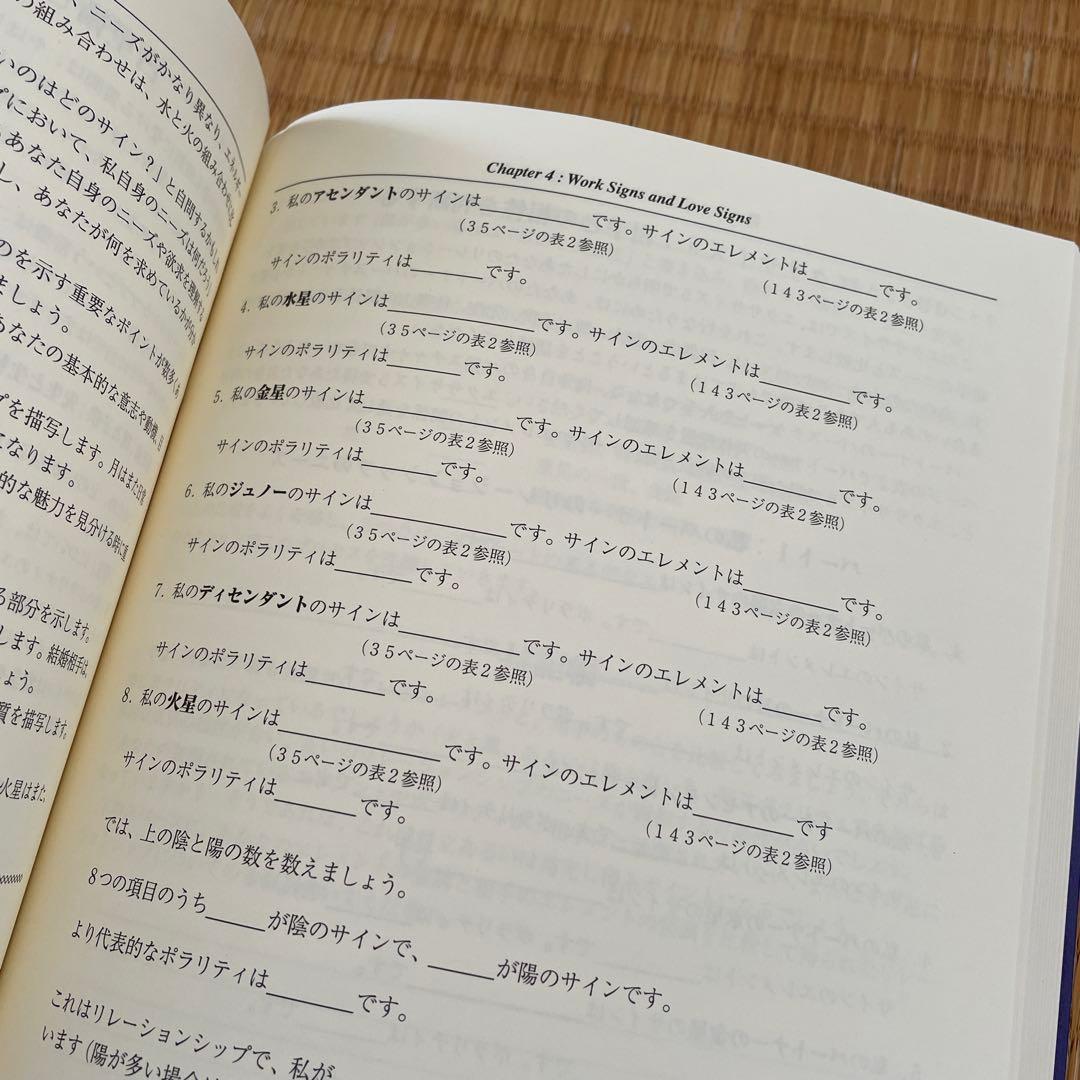 、ニーズがかなり異なり、エネルギー
の組み合わせは、水と火の組み合わせほど
いのはどのサイン?」と自問するかもしれ
プにおいて、私自身のニーズは何だろう
あなた自身のニーズや欲求を理解する
し、あなたが何を求めているかがわか
のを示す重要なポイントが数多くあ
ましょう。
あなたの基本的な意志や動機、目
プを描写します。月はまた日常
になります。
的な魅力を見分ける時に重
る部分を示します。
します。結婚相手は、
ょう。
質を描写します。
火星はまた、
Chapter 4 : Work Signs and Love Signs
3. 私のアセンダントのサインは________です。サインのエレメントは______です。
(35ページの表2参照)
(143ページの表2参照)
サインのポラリティは______です。
4. 私の水星のサインは____________です。サインのエレメントは________です。
(35ページの表2参照)
(143ページの表2参照)
サインのポラリティは______です。
5. 私の金星のサインは____________です。サインのエレメントは________です。
(35ページの表2参照)
(143ページの表2参照)
サインのポラリティは______です。
6. 私のジュノーのサインは__________です。サインのエレメントは________です。
(35ページの表2参照)
(143ページの表2参照)
サインのポラリティは______です。
7. 私のディセンダントのサインは________です。サインのエレメントは_____です。
(35ページの表2参照)
(143ページの表2参照)
サインのポラリティは______です。
8. 私の火星のサインは____________です。サインのエレメントは________です
(35ページの表2参照)
(143ページの表2参照)
サインのポラリティは______です。
では、上の陰と陽の数を数えましょう。
8つの項目のうち_____が陰のサインで、_____が陽のサインです。
より代表的なポラリティは______です。
これはリレーションシップで、私が
います(陽が多い場合は